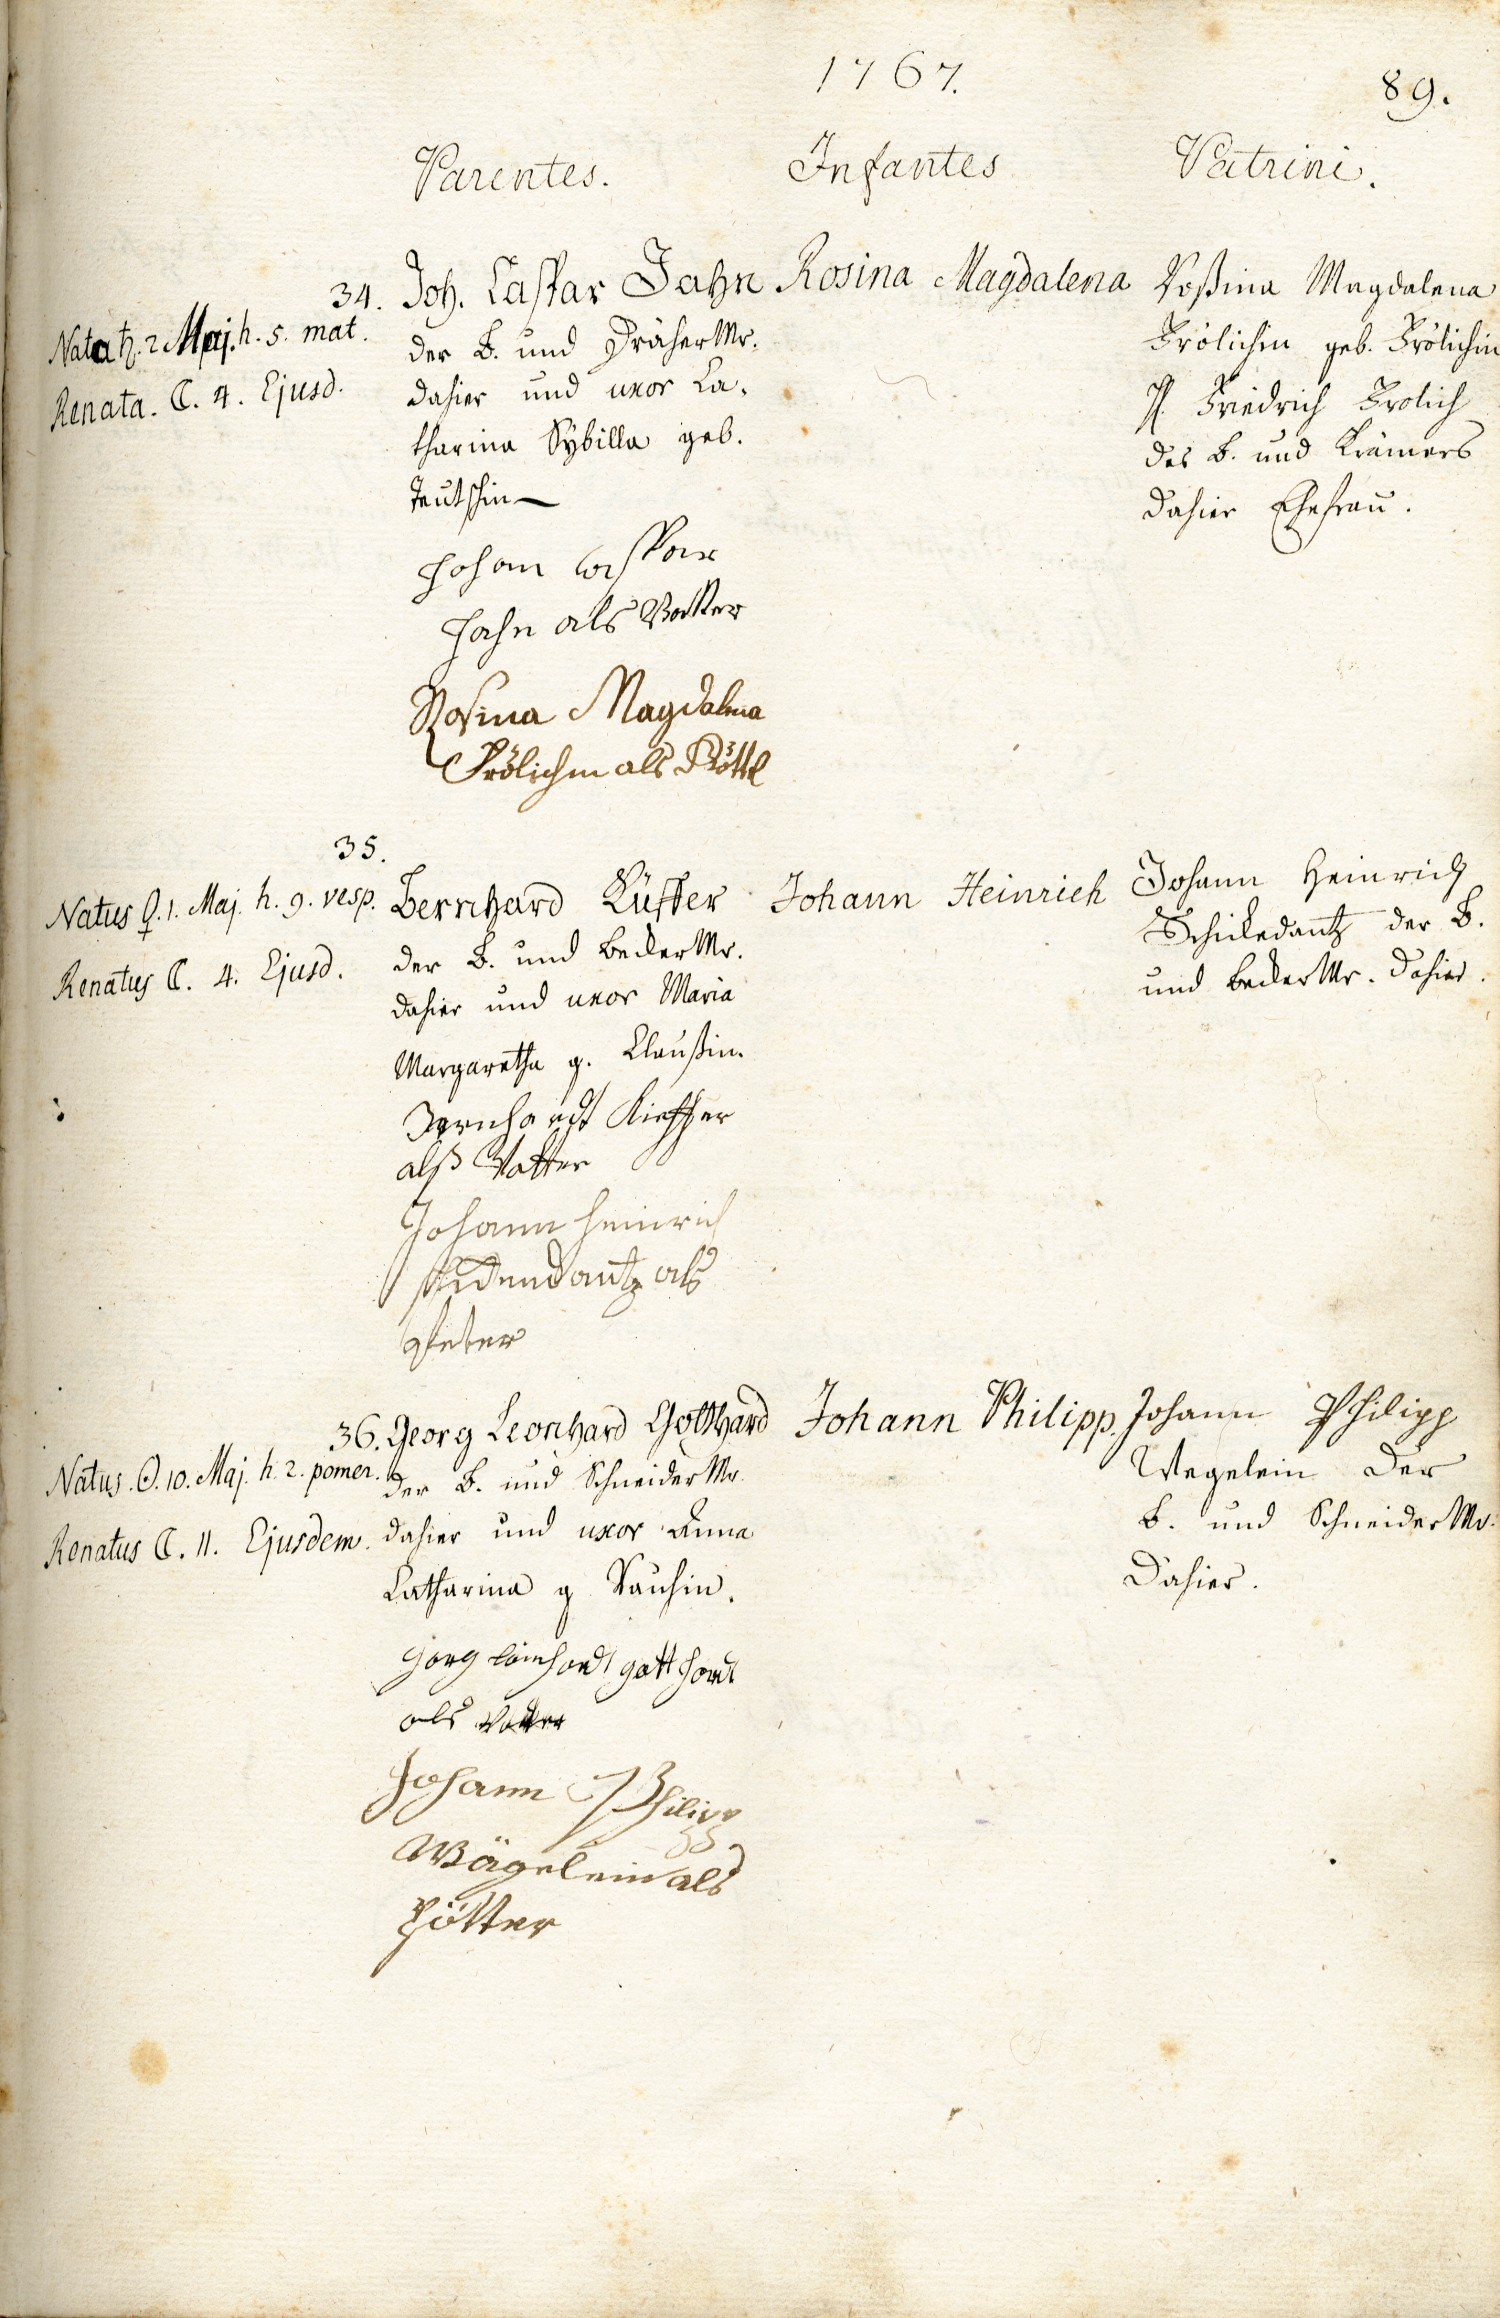 1767.
89.
Parentes.
Infantes
Patrini.
34.
Nata ♄. 2 Maj. h. 5. mat.
Renata. ☾. 4. Ejusd.
Joh. Caspar Jahn
der B. und Dräher Mr.
dahier und uxor Ca-
tharina Sybilla geb.
Teutschin
Johan Caspar
Jahn als Vatter
Rosina Magdalena
Frölichin als
Rosina Magdalena
Roßina Magdalena
Frölichin geb. Frölichin
Friedrich Frölich
des B. und Krämers
dahier Ehefrau.
35.
Natus ♀. 1. Maj. h. 9. vesp.
Renatus ☾. 4. Ejusd.
Bernhard Küffer
der B. und Becker Mr.
dahier und uxor Maria
Margaretha g. Claußin.
Bernhardt Kieffer
alß Vatter
Johann Heinrich
als
Johann Heinrich
Johann Heinrich
Schickedantz der B.
und Becker Mr. dahier.
36.
Natus. ☉. 10. Maj. h. 2. pomer.
Renatus ☾. 11. Ejusdem.
Georg Leonhard Gotthard
der B. und Schneider Mr.
dahier und uxor Anna
Catharina g
gorg leinhardt gotthardt
als Vatter
Johann Philipp
Wägelein als
Pötter
Johann Philipp.
Johann Philipp
Wegelein der
B. und Schneider Mr.
Dahier.